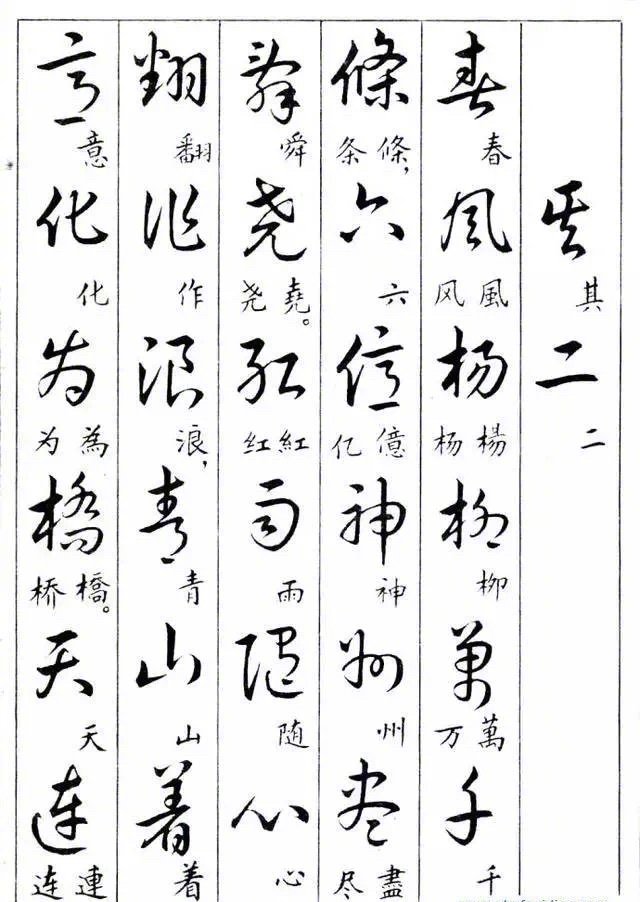 其二
其二
春风杨柳萬千
春 風风 楊杨 柳 萬万 千
條六億神州尽
條，条 六 億亿 神 州 盡尽
舜尧红雨随心
舜 堯。尧 紅红 雨 随 心
翻作浪青山着
翻 作 浪， 青 山 着
意化为橋天连
意 化 為为 橋。桥 天 連连